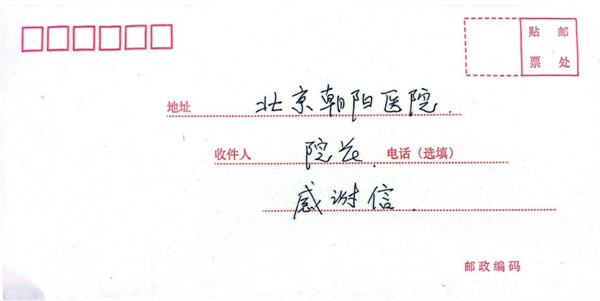 贴 邮
票 处
地址 北京朝阳医院
收件人 院 电话（选填）
感谢信
邮政编码